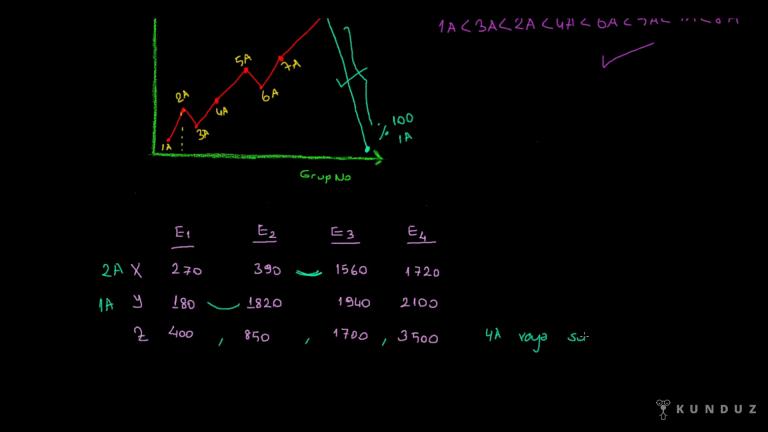 1A < 3A < 2A < 4A < 6A < 5A <
5A
7A
2A
6A
4A
3A
1A
% 100
1A
Grup No
E1 E2 E3 E4
2A X 270 390 1560 1720
1A Y 180 1820 1940 2100
Z 400 , 850 , 1700 , 3500 4A veya
KUNDUZ